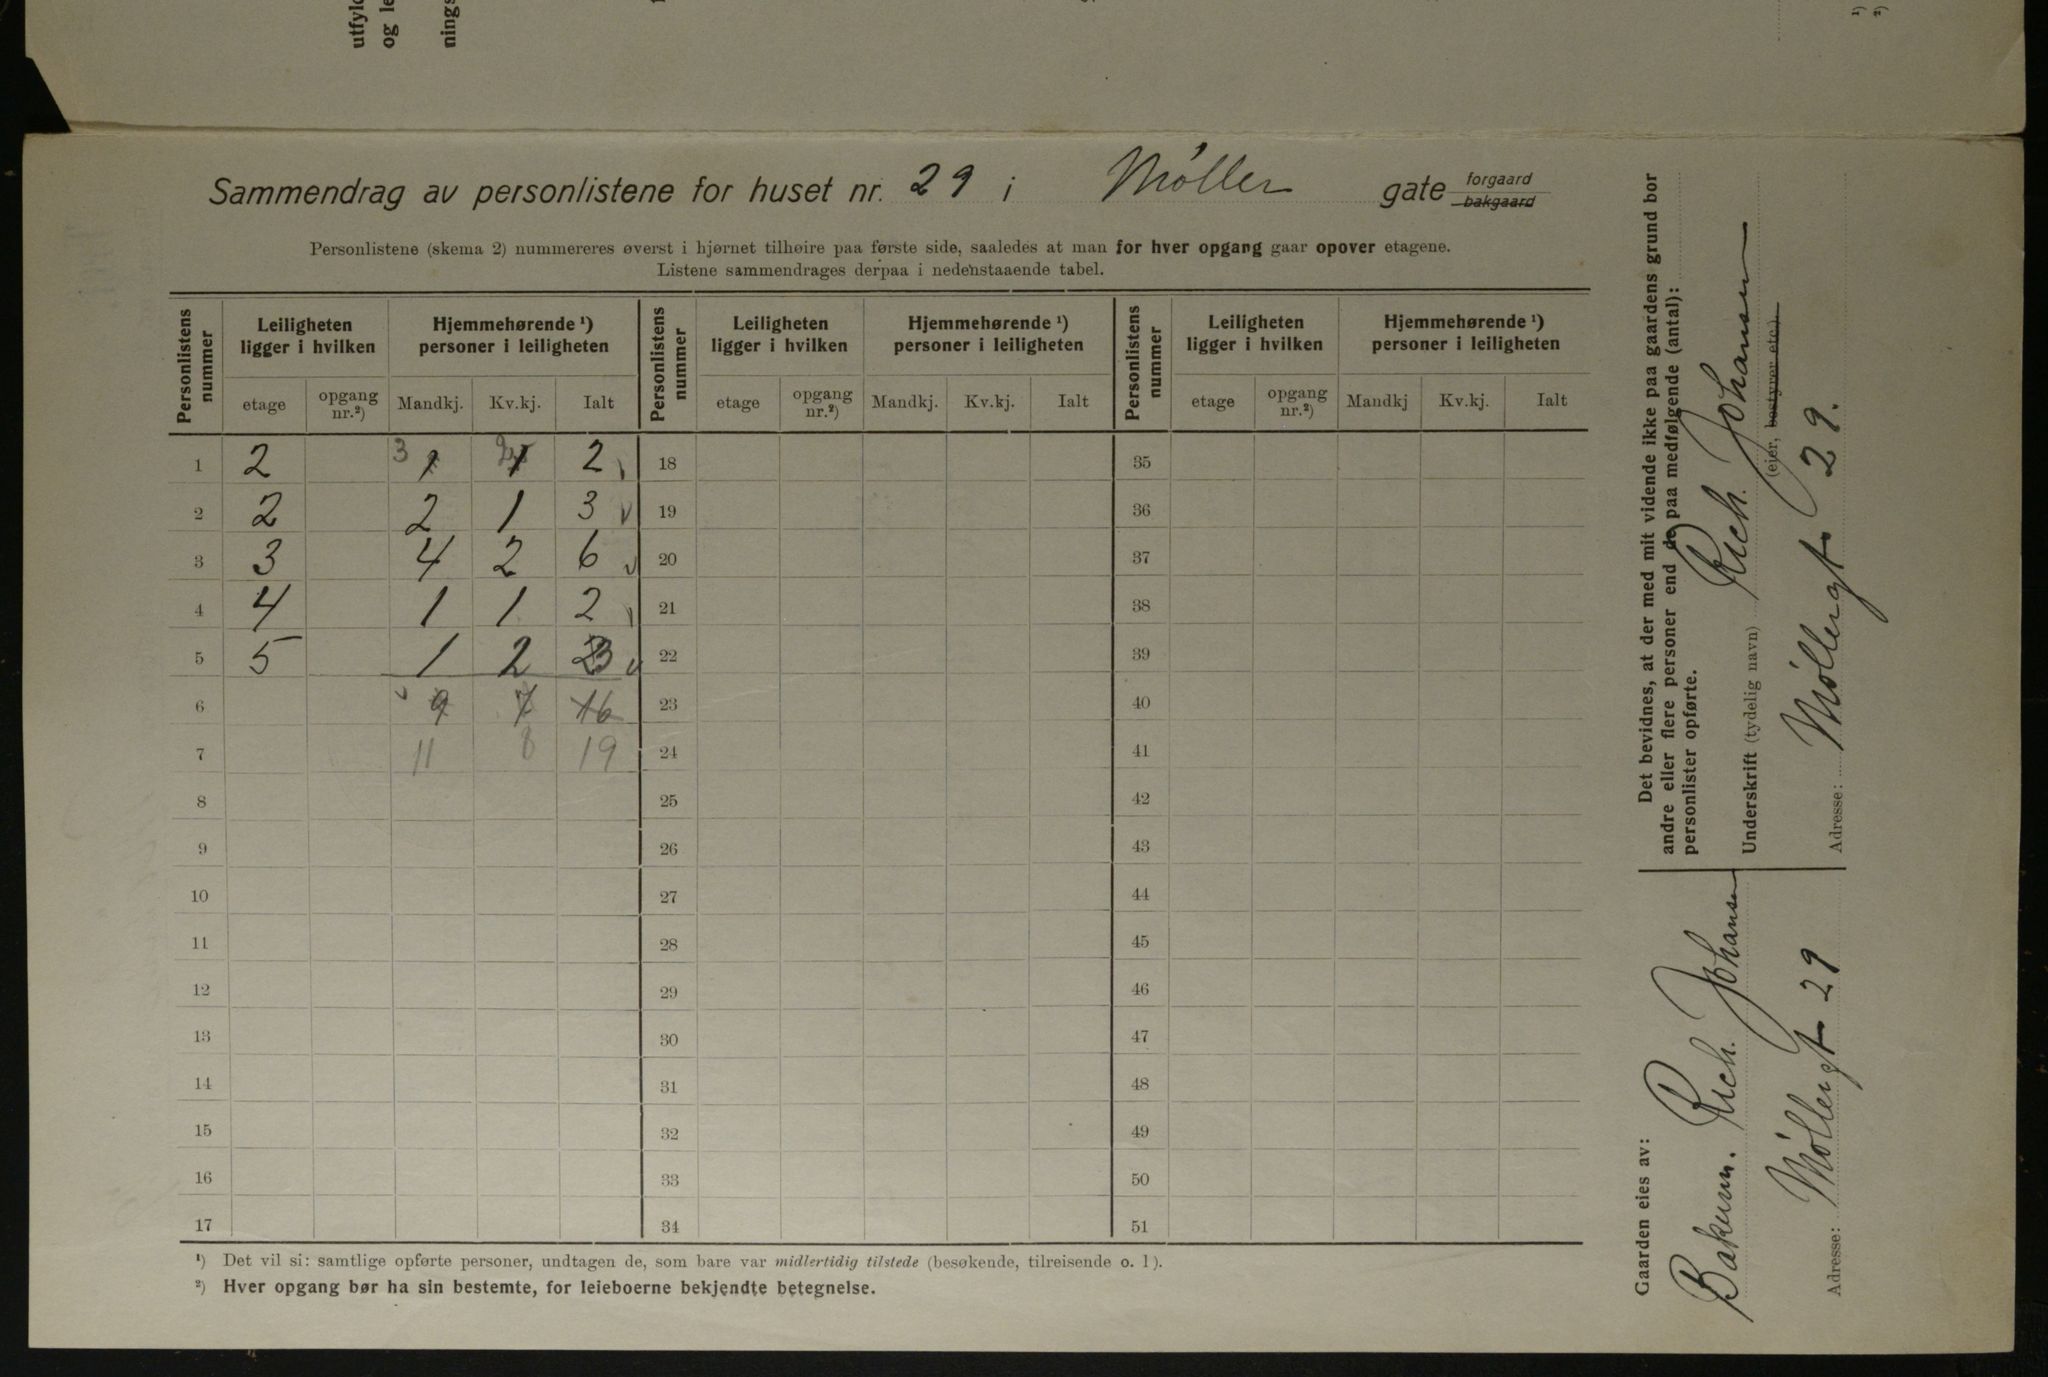 utfyld
og le
nings
1)
2)
Sammendrag av personlistene for huset nr. 29 i Møller gate forgaard
bakgaard
Personlistene (skema 2) nummereres øverst i hjørnet tilhøire paa første side, saaledes at man for hver opgang gaar opover etagene.
Listene sammendrages derpaa i nedenstaaende tabel.
Personlistens nummer | Leiligheten ligger i hvilken | Hjemmehørende ¹) personer i leiligheten | Personlistens nummer | Leiligheten ligger i hvilken | Hjemmehørende ¹) personer i leiligheten | Personlistens nummer | Leiligheten ligger i hvilken | Hjemmehørende ¹) personer i leiligheten
etage | opgang nr.²) | Mandkj. | Kv.kj. | Ialt | etage | opgang nr.²) | Mandkj. | Kv.kj. | Ialt | etage | opgang nr.²) | Mandkj | Kv.kj. | Ialt
1 2 3 1 2 1 2 18 35
2 2 2 1 3 v 19 36
3 3 4 2 6 v 20 37
4 4 1 1 2 21 38
5 5 1 2 3 v 22 39
6 v 9 7 16 23 40
7 11 8 19 24 41
8 25 42
9 26 43
10 27 44
11 28 45
12 29 46
13 30 47
14 31 48
15 32 49
16 33 50
17 34 51
¹) Det vil si: samtlige opførte personer, undtagen de, som bare var midlertidig tilstede (besøkende, tilreisende o. l).
²) Hver opgang bør ha sin bestemte, for leieboerne bekjendte betegnelse.
Det bevidnes, at der med mit vidende ikke paa gaardens grund bor
andre eller flere personer end de paa medfølgende (antal):
personlister opførte.
Rich. Johansen
Underskrift (tydelig navn)
(eier, bestyrer etc.).
Adresse: Møllergt 29.
Gaarden eies av:
Bakerm. Rich. Johansen
Adresse: Møllergt 29